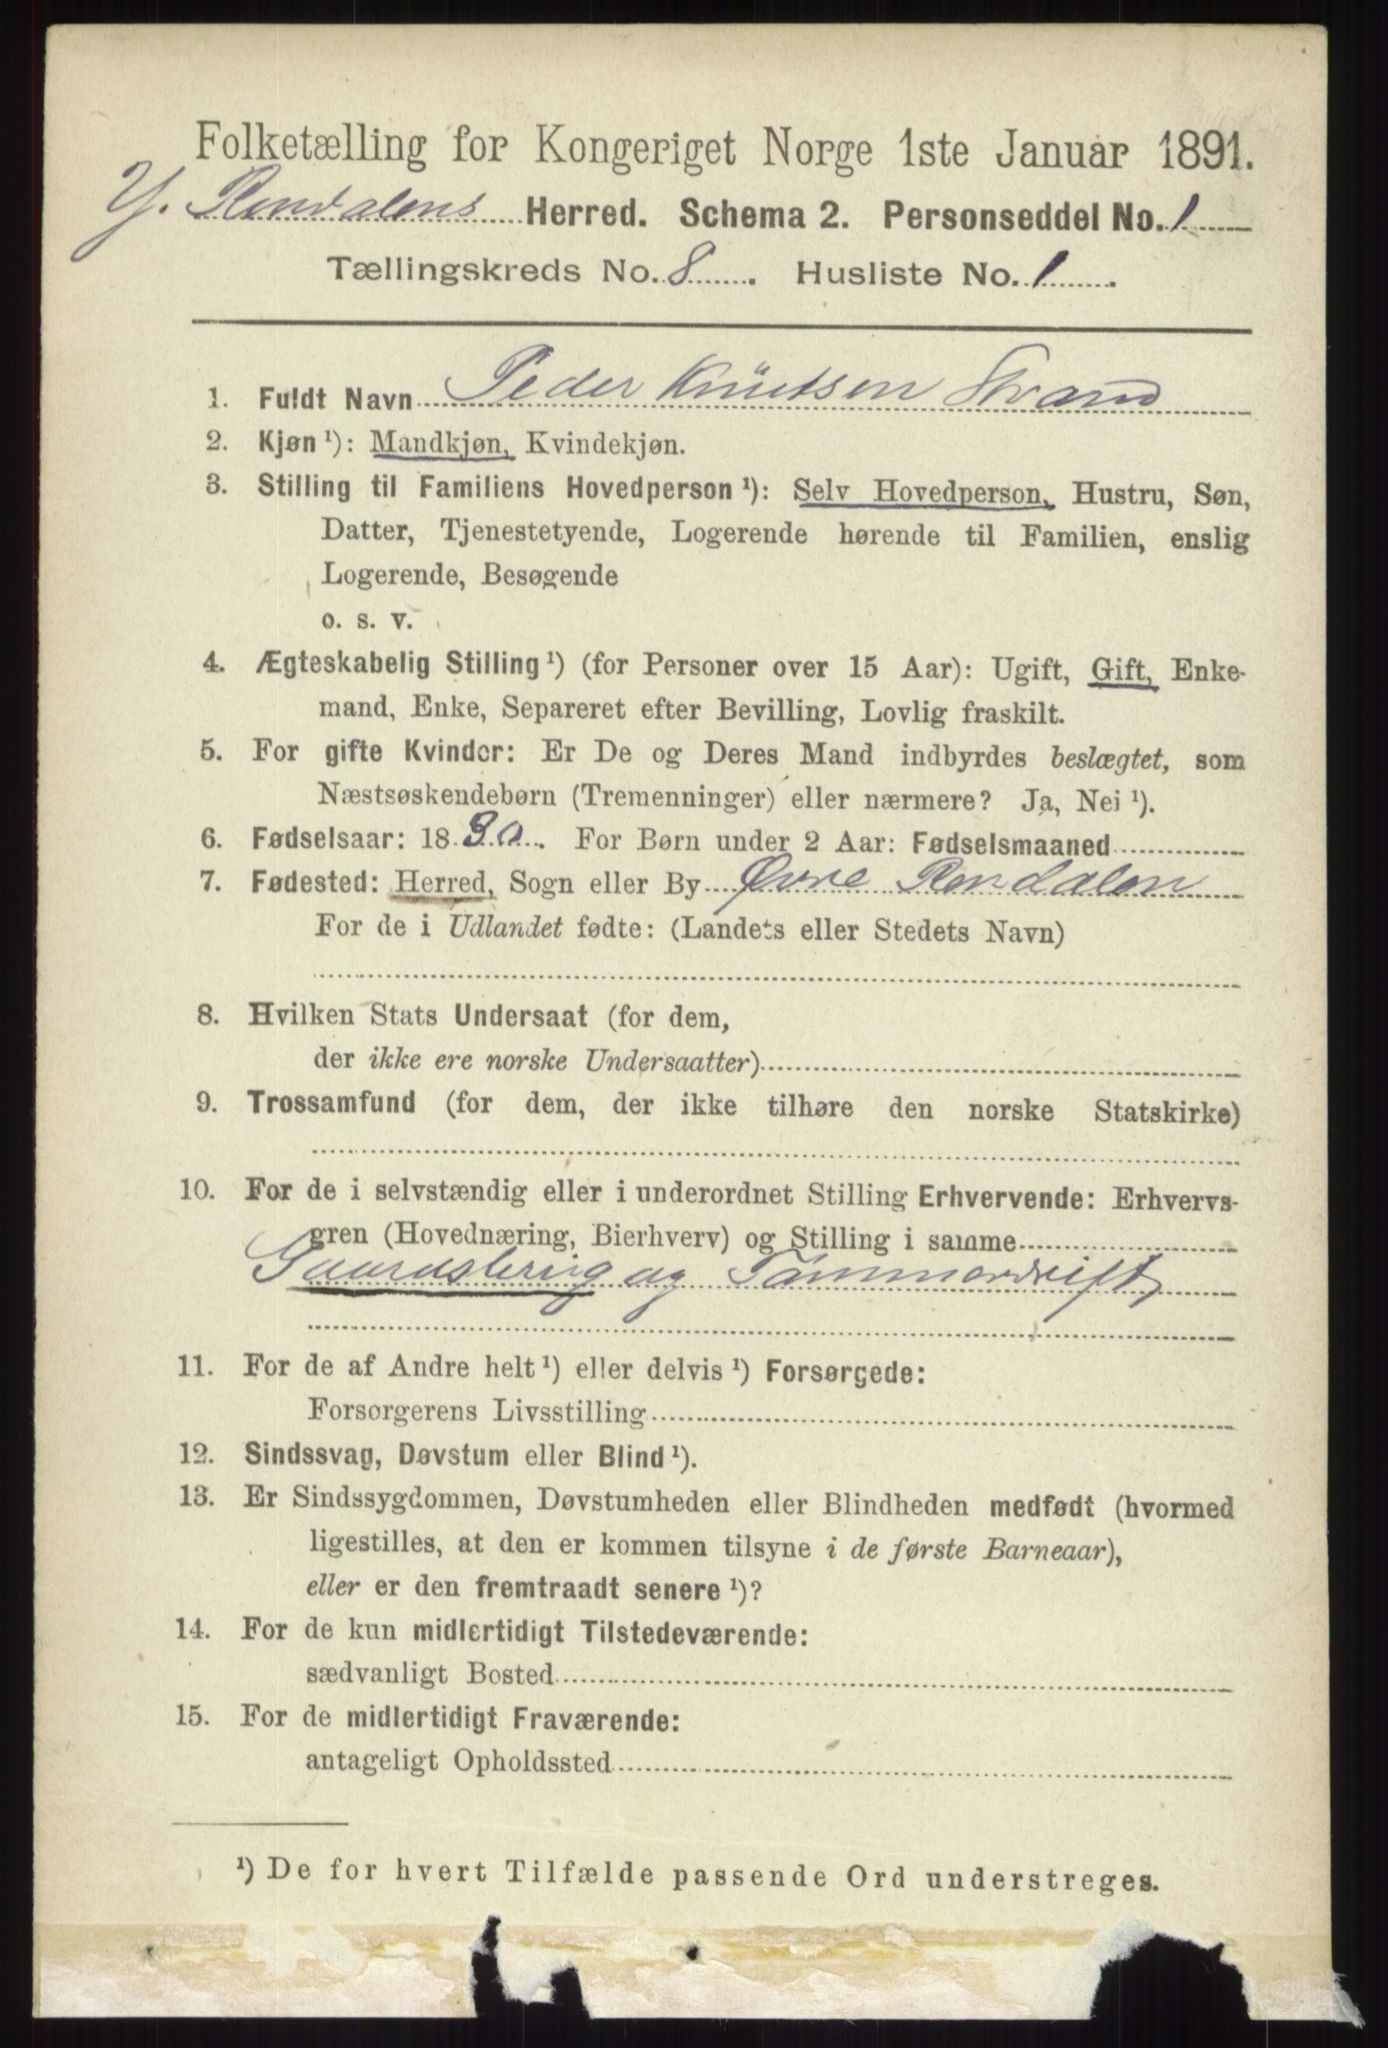 Folketælling for Kongeriget Norge 1ste Januar 1891.
Y. Rendalens Herred. Schema 2. Personseddel No. 1
Tællingskreds No. 8. Husliste No. 1.
1. Fuldt Navn Peder Knutsen Strand
2. Kjøn ¹): Mandkjøn, Kvindekjøn.
3. Stilling til Familiens Hovedperson ¹): Selv Hovedperson, Hustru, Søn,
Datter, Tjenestetyende, Logerende hørende til Familien, enslig
Logerende, Besøgende
o. s. v.
4. Ægteskabelig Stilling ¹) (for Personer over 15 Aar): Ugift, Gift, Enke-
mand, Enke, Separeret efter Bevilling, Lovlig fraskilt.
5. For gifte Kvinder: Er De og Deres Mand indbyrdes beslægtet, som
Næstsøskendebørn (Tremenninger) eller nærmere? Ja, Nei ¹).
6. Fødselsaar: 1830. For Børn under 2 Aar: Fødselsmaaned
7. Fødested: Herred, Sogn eller By Øvre Rendalen
For de i Udlandet fødte: (Landets eller Stedets Navn)
8. Hvilken Stats Undersaat (for dem,
der ikke ere norske Undersaatter)
9. Trossamfund (for dem, der ikke tilhøre den norske Statskirke)
10. For de i selvstændig eller i underordnet Stilling Erhvervende: Erhvervs-
gren (Hovednæring, Bierhverv) og Stilling i samme
Gaardsbrug og Tømmerdrift
11. For de af Andre helt ¹) eller delvis ¹) Forsørgede:
Forsorgerens Livsstilling
12. Sindssvag, Døvstum eller Blind ¹).
13. Er Sindssygdommen, Døvstumheden eller Blindheden medfødt (hvormed
ligestilles, at den er kommen tilsyne i de første Barneaar),
eller er den fremtraadt senere ¹)?
14. For de kun midlertidigt Tilstedeværende:
sædvanligt Bosted
15. For de midlertidigt Fraværende:
antageligt Opholdssted
¹) De for hvert Tilfælde passende Ord understreges.